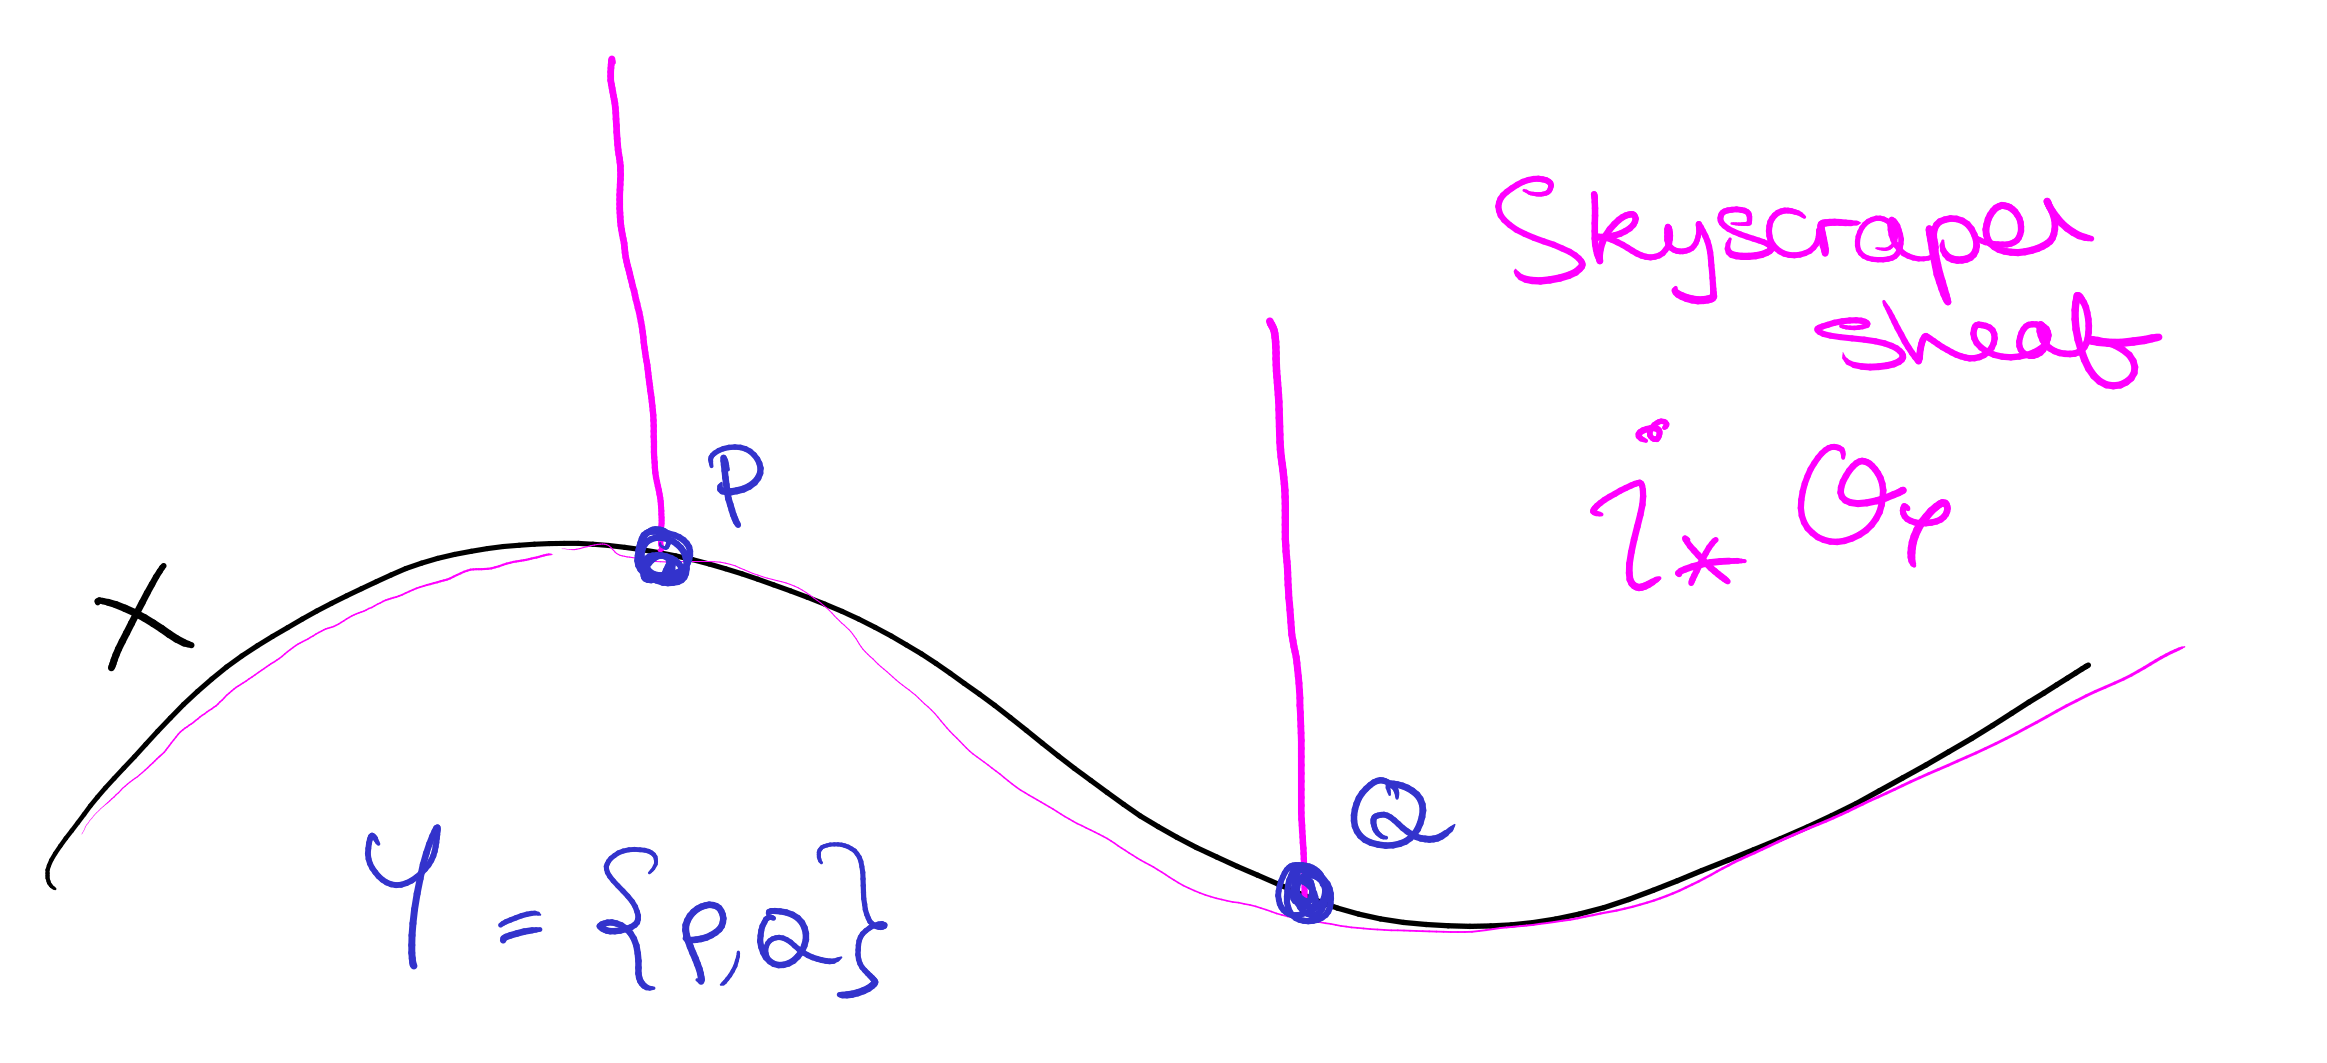 Skyscraper
sheaf
i_* O_Y
P
X
Q
Y = {P, Q}